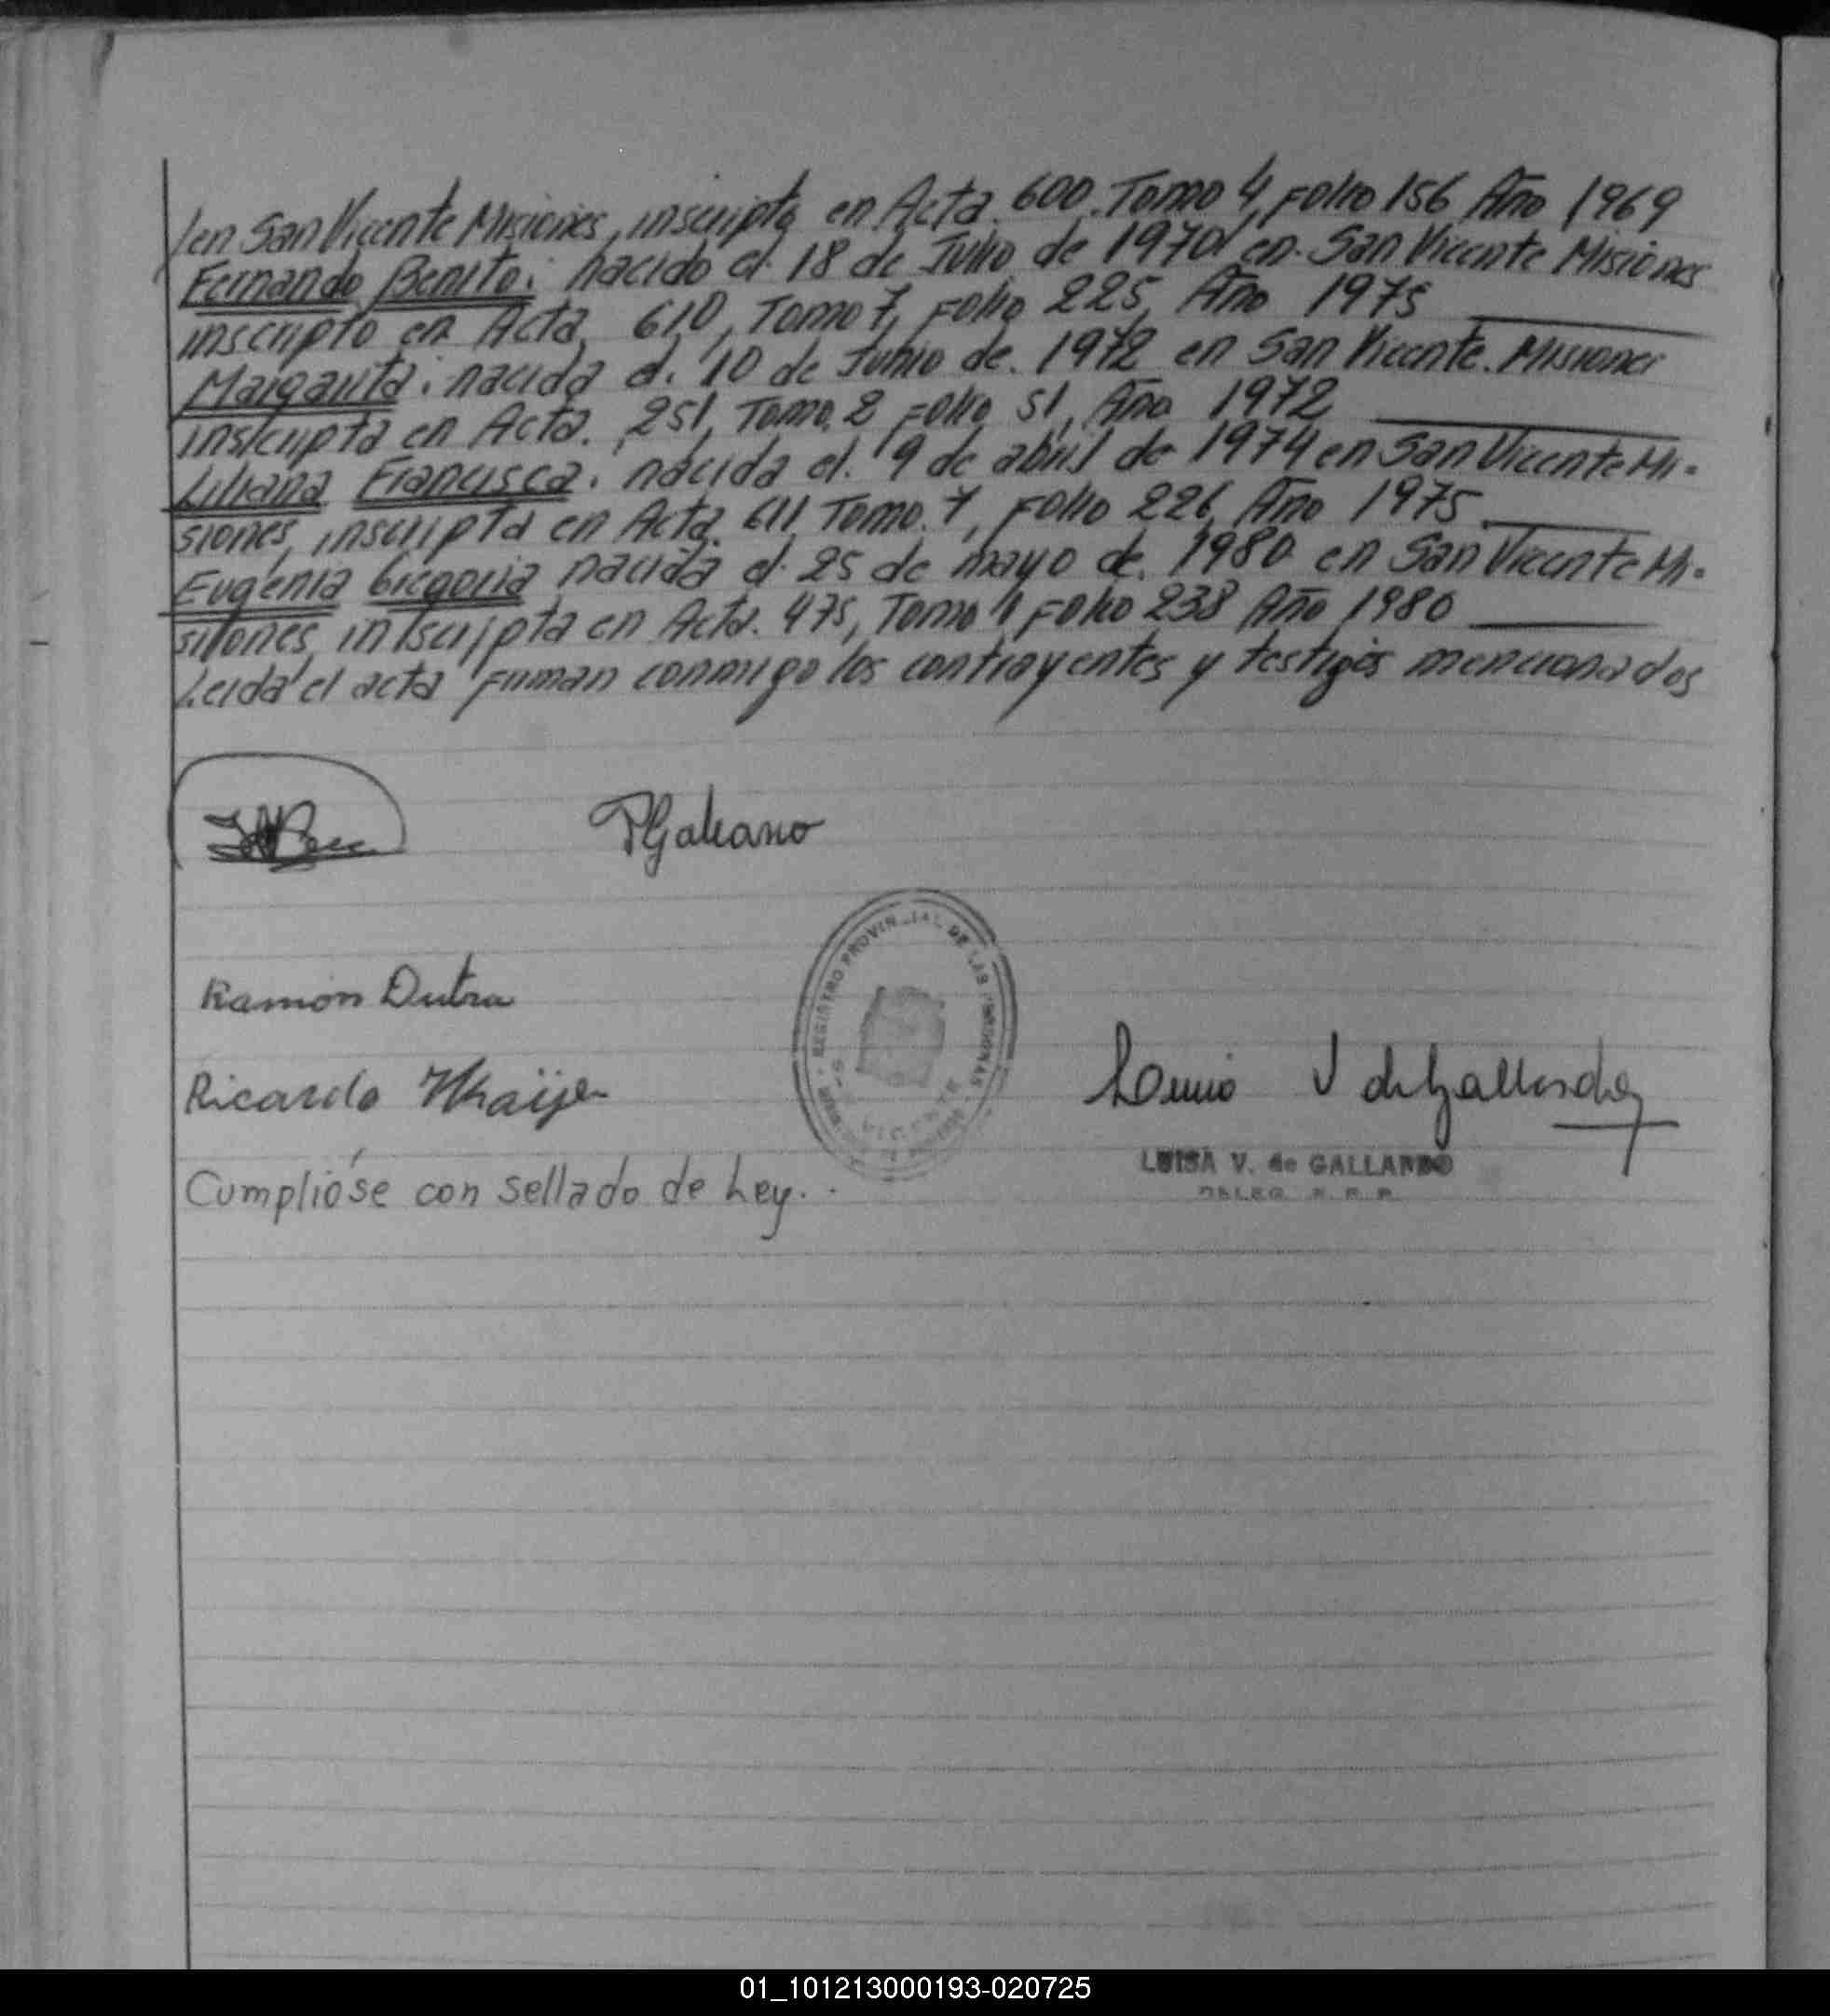 /en San Vicente Misiones, inscripta en Acta. 600. Tomo 4, Folio 156 Año 1969
Fernando Benito: nacido el 18 de Julio de 1970 en San Vicente Misiones
inscripto en Acta, 610, Tomo 7, Folio 225, Año 1975
Margarita: nacida el. 10 de Junio de. 1972 en San Vicente. Misiones
inscripta en Acta. 251, Tomo. 2 Folio 51, Año 1972
Liliana Francisca: nacida el. 9 de abril de 1974 en San Vicente Mi-
siones, inscripta en Acta. 611 Tomo. 7, Folio 226, Año 1975
Eugenia Gregoria nacida el 25 de mayo de. 1980 en San Vicente Mi-
siones, inscripta en Acta. 475, Tomo Folio 238 Año 1980
Leida el acta firman conmigo los contrayentes y testigos mencionados
Galeano
Ramón Dutra
REGISTRO PROVINCIAL DE LAS PERSONAS
Ricardo
V de Gallardo
LUISA V. de GALLARDO
DELEG. R. P. P.
Cumplióse con sellado de Ley.
01_101213000193-020725